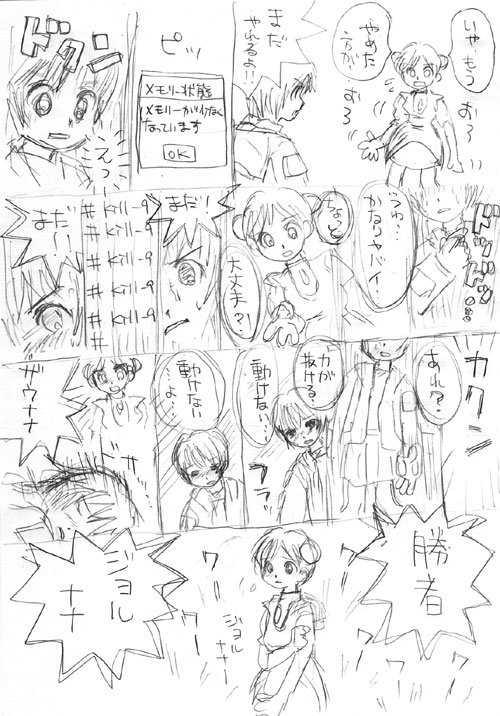 いやもう
やめた
方が
おろ
おろ
まだ
やれるよ!!
ピッ
メモリー状態
メモリーが少なく
なっています
OK
ドクン
えっ
ドッドッ
うわ…
かなりヤバイ!
ちょっと
大丈夫?!
まだ!
# kill -9
# kill -9
# kill -9
# kill -9
# kill -9
#
まだ…
カクン
あれ?
力が
抜ける…
動けない…
フラッ
動けない
よ…
ドサッ
ザワナナ
勝者
ワー
ワー
ワー
ジョル
ナナー
ジョル
ナナ